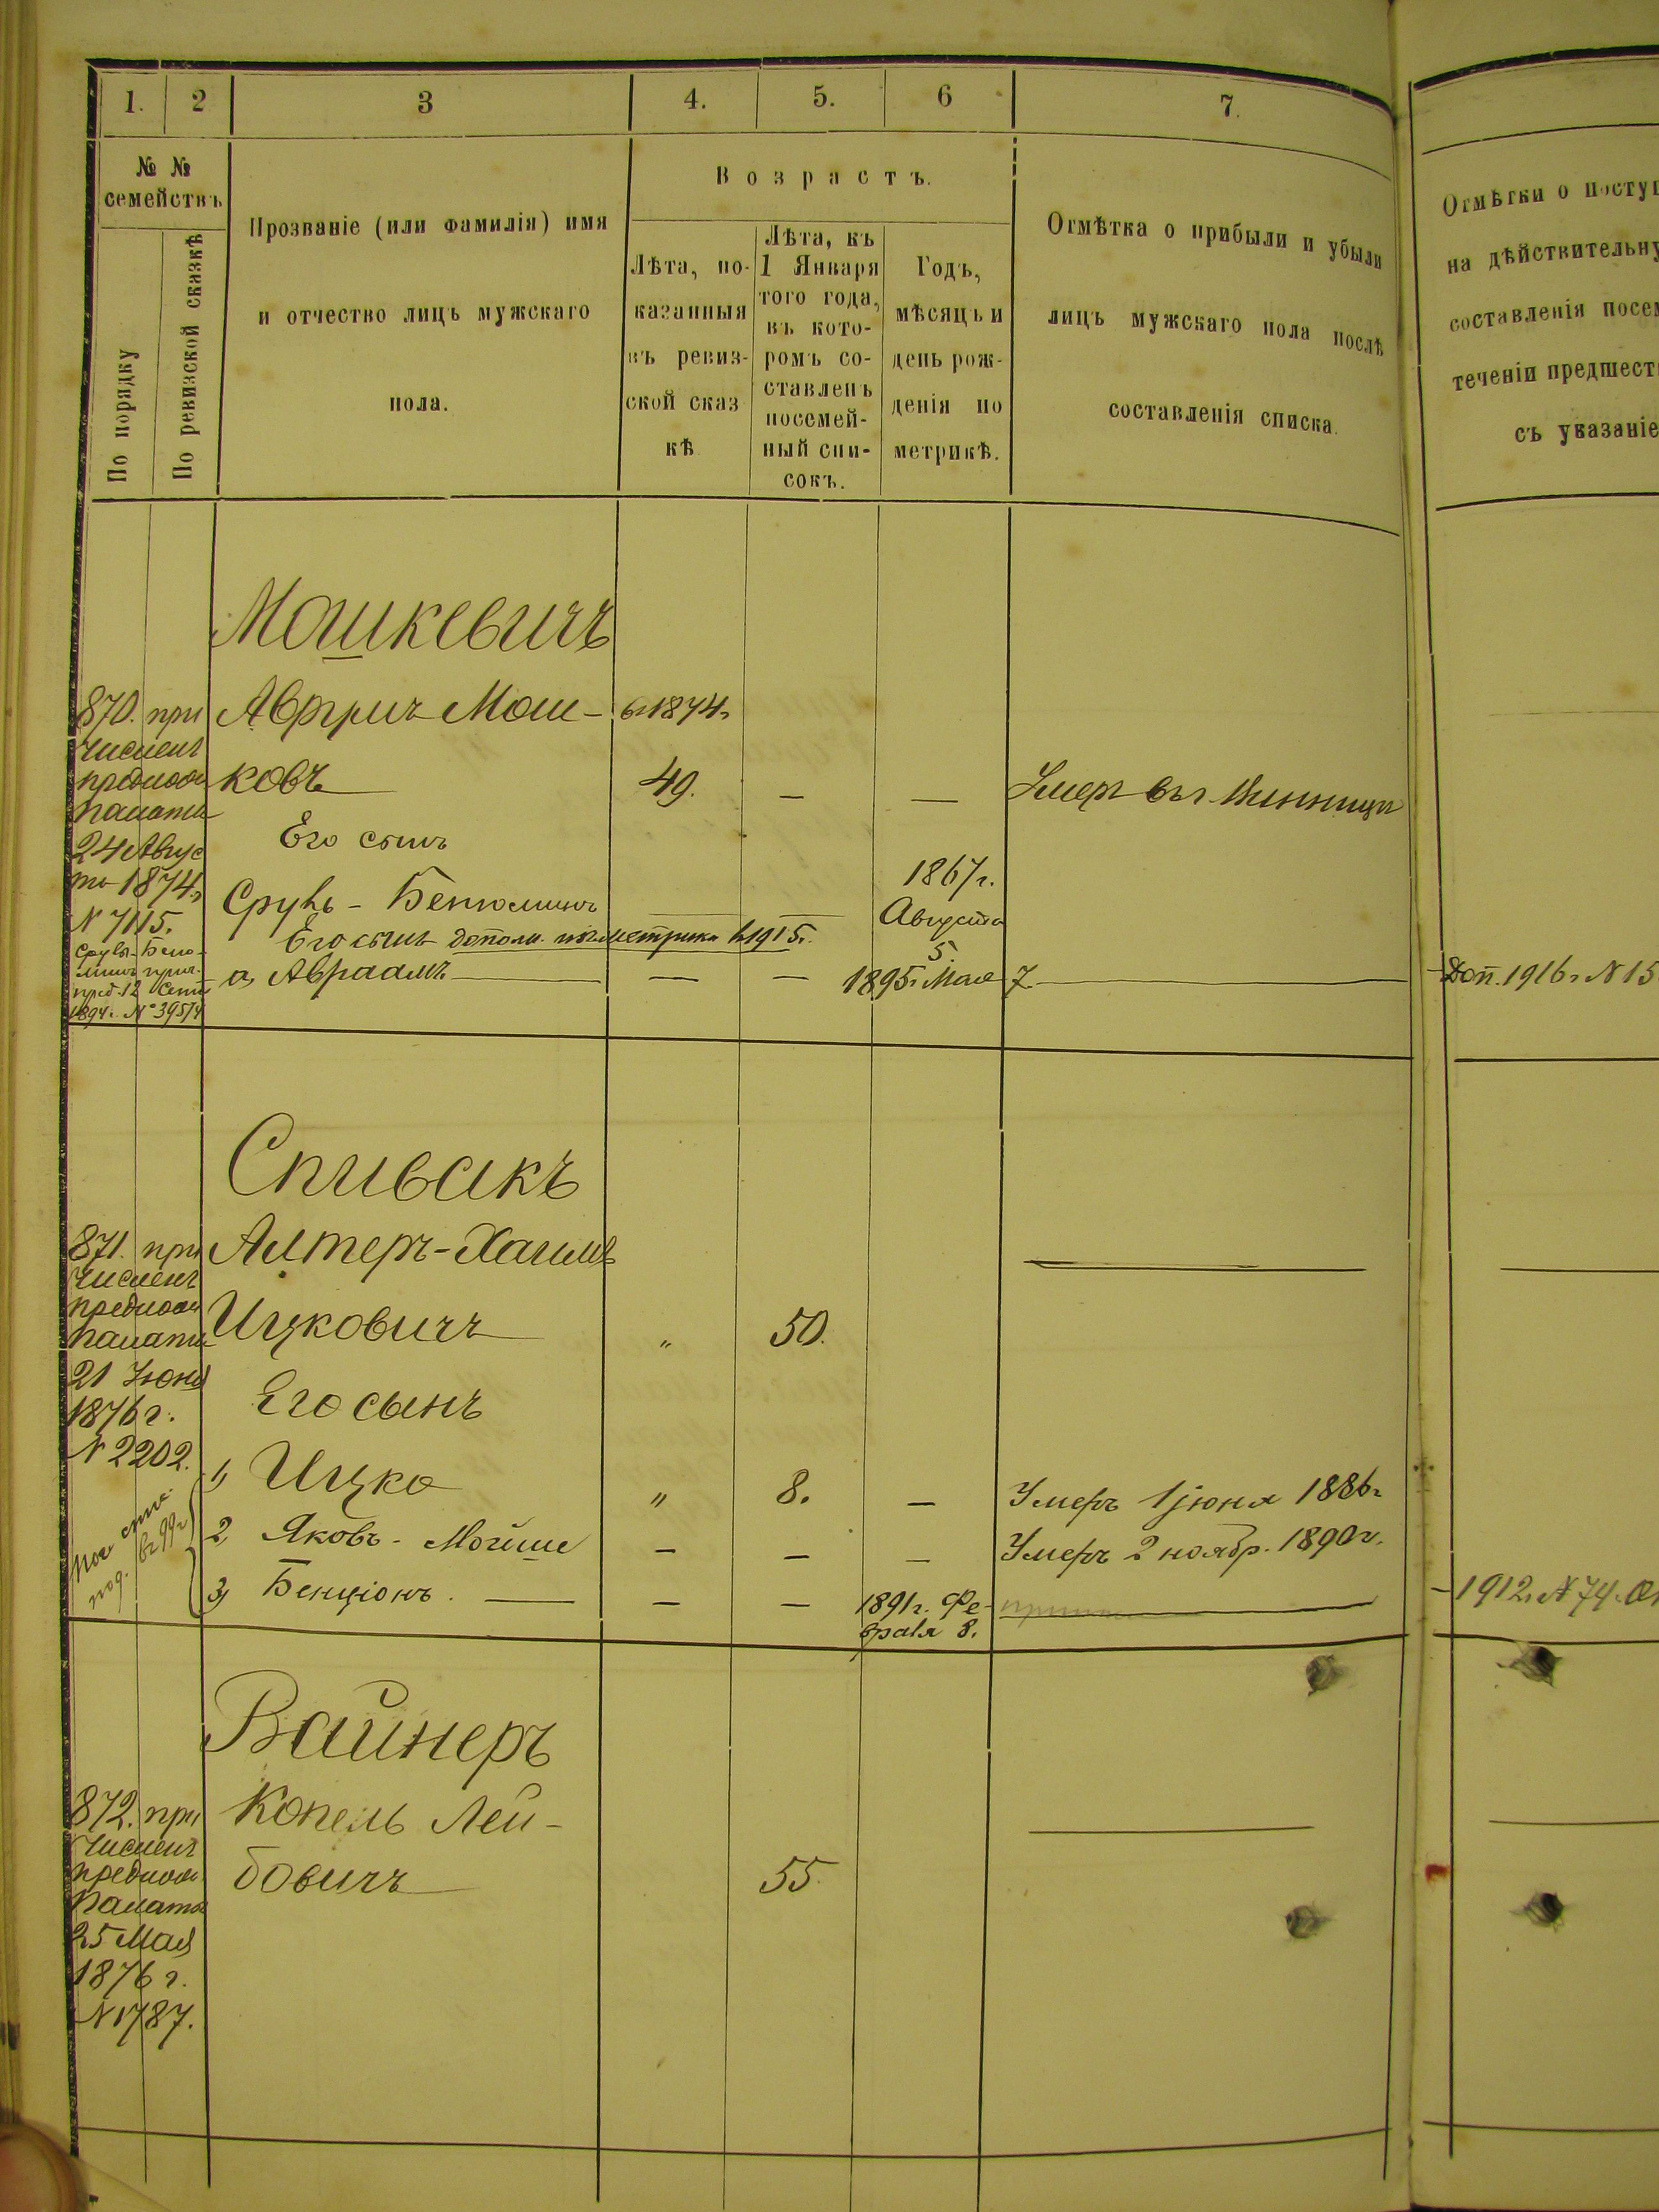 1. 2 3 4. 5. 6 7.
№ № семействъ
По порядку
По ревизской сказкѣ
Прозваніе (или фамилія) имя
и отчество лицъ мужскаго
пола.
Возрастъ.
Лѣта, по-
казанныя
въ ревиз-
ской сказ
кѣ
Лѣта, къ
1 Января
того года,
въ кото-
ромъ со-
ставленъ
посемей-
ный спи-
сокъ.
Годъ,
мѣсяцъ и
день рож-
денія по
метрикѣ.
Отмѣтка о прибыли и убыли
лицъ мужскаго пола послѣ
составленія списка.
Отмѣтки о посту
на дѣйствительну
составленія посе
теченіи предшест
съ указаніе
Мошкевичъ
870. при
численъ
предпсаи
палаты
24 Авгус
та 1874г
№ 7115.
Сруль-Беню-
минъ
пред. 12 Сент
1894г. № 39574
Авррумъ Мош- въ 1874г
ковъ 49. — — Умеръ въ г. Винницѣ
Его сынъ
Сруль - Бенюминъ 1867г.
Августа
5.
Его сынъ дополн. по метрики въ 1915г.
а, Авраамъ — — 1895г. Мая 7 Доп. 1916г № 15
Спивакъ
871. при
численъ
палаты
21 Июня
1876 г.
№ 2202.
Алтеръ-Хаимъ
Ицковичъ " 50.
Его сынъ
1, Ицко " 8. — Умеръ 1 июня 1886г
2, Яковъ - Мойше — — — Умеръ 2 ноябр. 1890г.
3, Бенціонъ. — — 1891г. Фе-
враля 8.
1912г № 74.
Вайнеръ
872. при
численъ
палаты
25 Мая
1876 г.
№ 1787.
Копель Лей-
бовичъ 55.